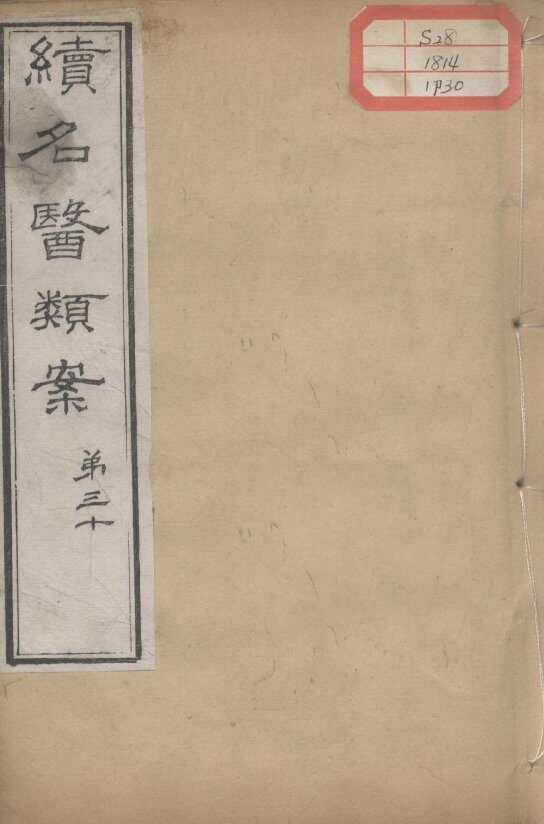 續名醫類案
弟三十
S28
1814
1P30